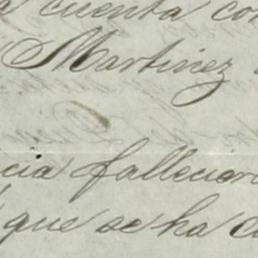 cuenta con
Martinez
cia fallecier
que se ha